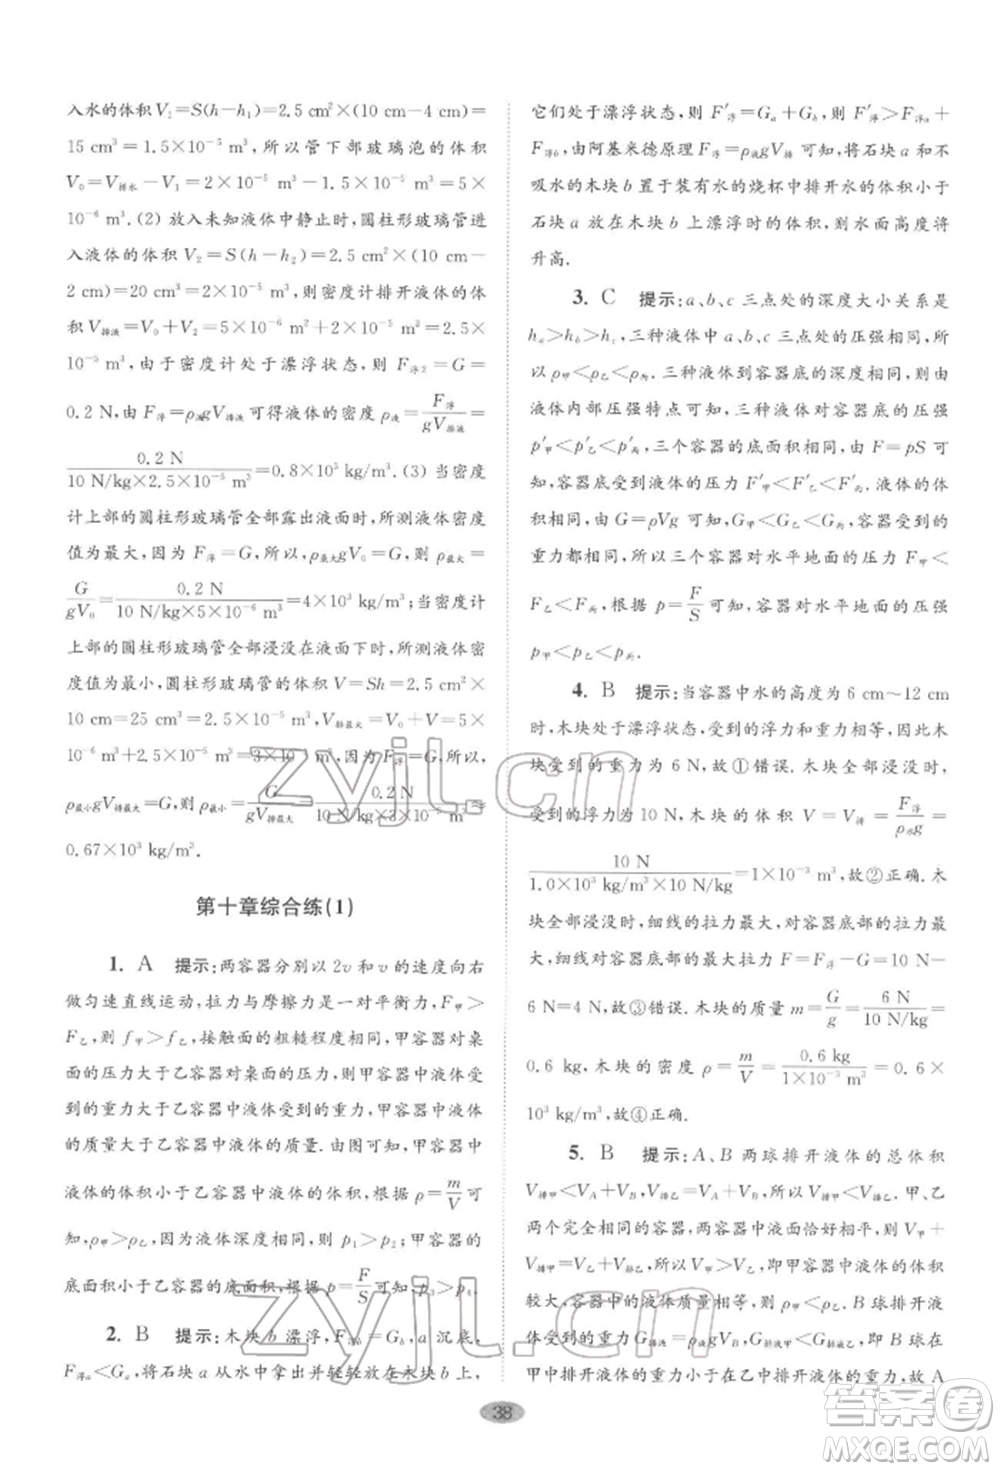 入水的体积 V₂=S(h-h₁)=2.5 cm²×(10 cm-4 cm)=
15 cm³=1.5×10⁻⁵ m³,所以管下部玻璃泡的体积
V₀=V排水-V₁=2×10⁻⁵ m³-1.5×10⁻⁵ m³=5×
10⁻⁶ m³.(2) 放入未知液体中静止时,圆柱形玻璃管进
入液体的体积 V₂=S(h-h₂)=2.5 cm²×(10 cm-
2 cm)=20 cm³=2×10⁻⁵ m³,则密度计排开液体的
体积 V排液=V₀+V₂=5×10⁻⁶ m³+2×10⁻⁵ m³=2.5×
10⁻⁵ m³,由于密度计处于漂浮状态,则 F浮2=G=
0.2 N,由 F浮=ρ液gV排液可得液体的密度 ρ液=F浮/gV排液=
0.2 N/10 N/kg×2.5×10⁻⁵ m³=0.8×10³ kg/m³.(3) 当密度
计上部的圆柱形玻璃管全部露出液面时,所测液体密度
值为最大,因为 F浮=G,所以,ρ最大gV₀=G,则 ρ最大=
G/gV₀=0.2 N/10 N/kg×5×10⁻⁶ m³=4×10³ kg/m³;当密度计
上部的圆柱形玻璃管全部浸没在液体中时,所测液体密
度值为最小,圆柱形玻璃管的体积 V=Sh=2.5 cm²×
10 cm=25 cm³=2.5×10⁻⁵ m³,V排最大=V₀+V=5×
10⁻⁶ m³+2.5×10⁻⁵ m³=3×10⁻⁵ m³,因为 F浮=G,所以,
ρ最小gV排最大=G,则 ρ最小=G/gV排最大=0.2 N/10 N/kg×3×10⁻⁵ m³≈
0.67×10³ kg/m³.
第十章综合练(1)
1. A 提示:两容器分别以 2v 和 v 的速度向右
做匀速直线运动,拉力与摩擦力是一对平衡力,F甲>
F乙,f甲>f乙,接触面的粗糙程度相同,甲容器对桌面
的压力大于乙容器对桌面的压力,则甲容器中液体受
到的重力大于乙容器中液体受到的重力,甲容器中液体
的质量大于乙容器中液体的质量.由图可知,甲容器中
液体的体积小于乙容器中液体的体积,根据 ρ=m/V可
知,ρ甲>ρ乙,液体深度相同,则 p₁>p₂;甲容器的
底面积小于乙容器的底面积,根据 p=F/S可知,p₃>p₄.
2. B 提示:木块 b 漂浮,F浮b=G_b,a 沉底,
F浮a<G_a,将石块 a 从水中拿出并轻轻放在木块 b 上,
它们处于漂浮状态,则 F′浮=G_a+G_b,则 F′浮>F浮a+
F浮b,由阿基米德原理 F浮=ρ液gV排可知,将石块 a 和
不吸水的木块 b 置于装有水的烧杯中排开水的体积小于
石块 a 放在木块 b 上漂浮时的体积,则水面高度将
升高.
3. C 提示:a、b、c 三点处的深度大小关系是
h_a>h_b>h_c,三种液体中 a、b、c 三点处的压强相同,所
以 ρ甲<ρ乙<ρ丙.三种液体到容器底的深度相同,由
液体内部压强特点可知,三种液体对容器底的压强
p′甲<p′乙<p′丙,三个容器的底面积相同,由 F=pS 可
知,容器底受到液体的压力 F′甲<F′乙<F′丙.液体的体
积相同,由 G=ρVg 可知,G甲<G乙<G丙,容器受到的
重力也相同,所以三个容器对水平地面的压力 F甲<
F乙<F丙,根据 p=F/S可知,容器对水平地面的压强
p甲<p乙<p丙.
4. B 提示:当容器中水的高度为 6 cm~12 cm
时,木块处于漂浮状态,受到的浮力和重力相等,因此木
块受到的重力为 6 N,故①错误.木块全部浸没时,
受到的浮力为 10 N,木块的体积 V=V排=F浮/ρ水g=
10 N/1.0×10³ kg/m³×10 N/kg=1×10⁻³ m³,故②正确.木
块全部浸没时,细线的拉力最大,对容器底部的拉力最大,
木块对容器底部的最大拉力 F=F浮-G=10 N-
6 N=4 N,故③错误.木块的质量 m=G/g=6 N/10 N/kg=
0.6 kg,木块的密度 ρ=m/V=0.6 kg/1×10⁻³ m³=0.6×
10³ kg/m³,故④正确.
5. B 提示:A、B 两球排开液体的总体积
V排甲<V_A+V_B,V排乙=V_A+V_B,所以 V排甲<V排乙.甲、乙
两个完全相同的容器,两容器中液面恰好相平,所以 V甲+
V排甲=V乙+V排乙,因为 V排甲<V排乙,则甲中液体的体积
较大,容器中的液体质量相等,则 ρ甲<ρ乙;B 球排开液
体的重力 G排液=ρ液gV_B,所以 G排液甲<G排液乙,即 B 球在
甲中排开液体的重力小于在乙中排开液体的重力,故 A
38
zyjl.cn
zyjl.cn
答案圈
MXQE.COM